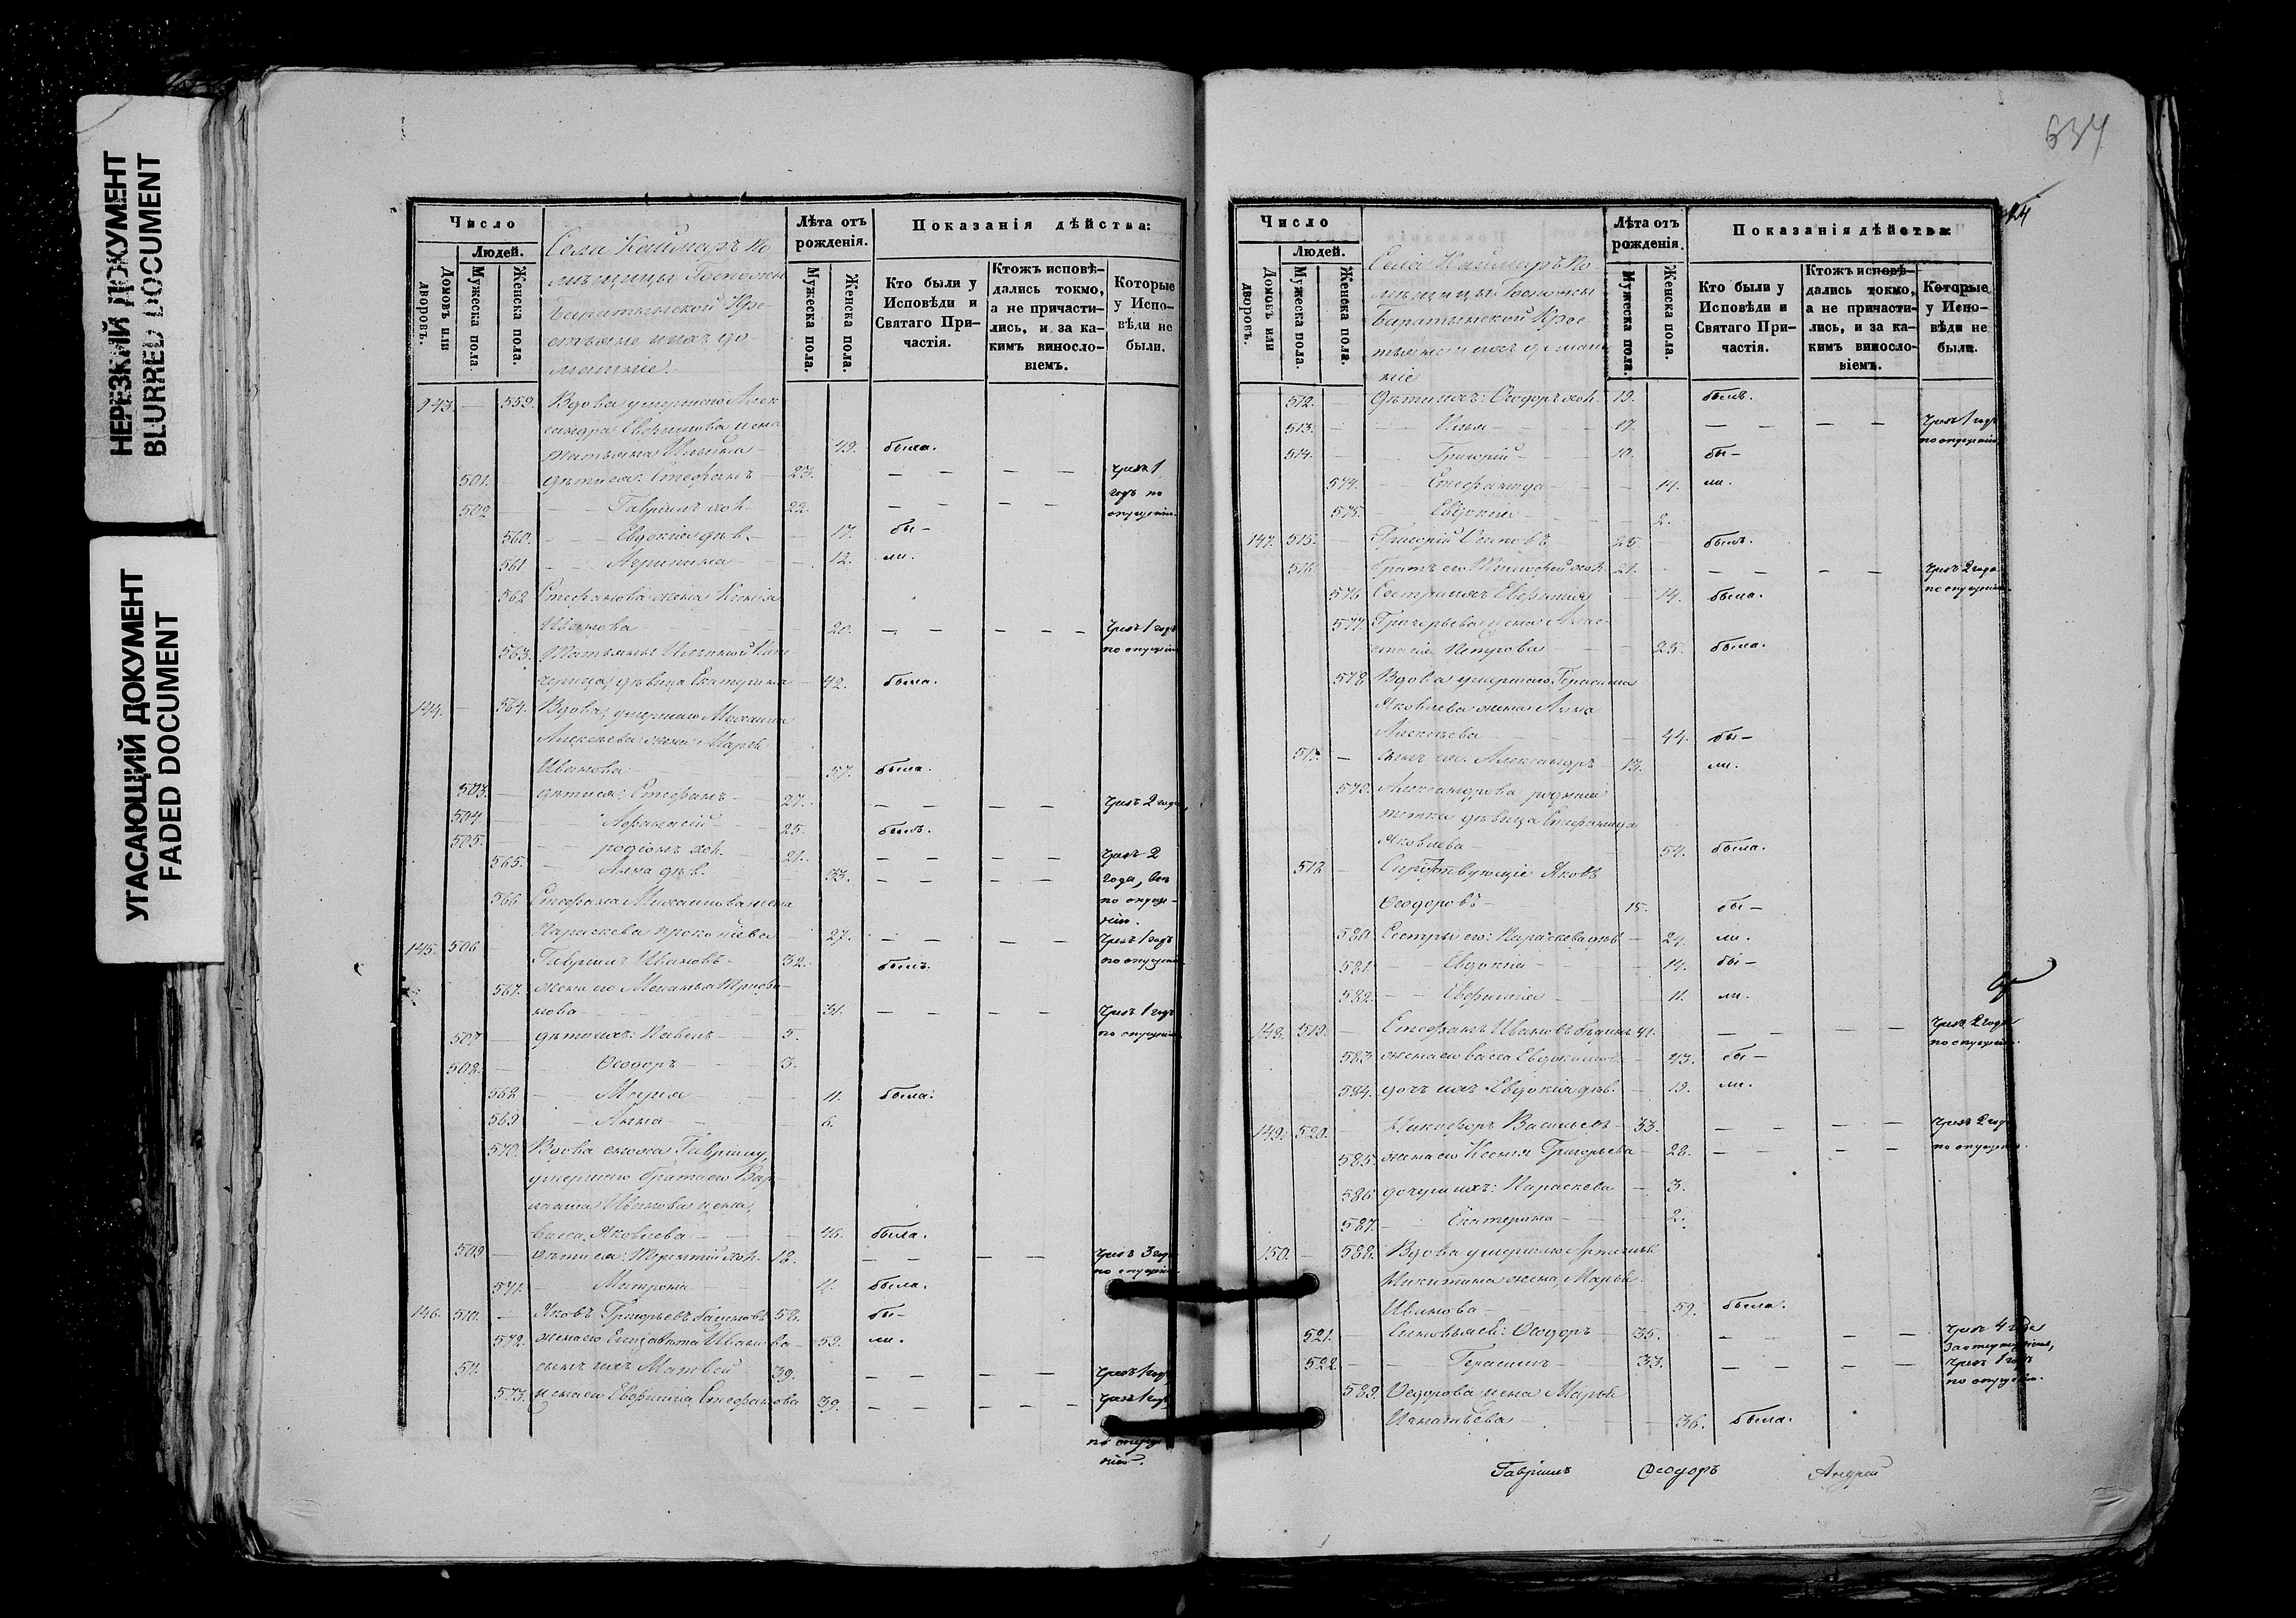 НЕРЕЗКИЙ ДОКУМЕНТ
BLURRED DOCUMENT
УГАСАЮЩИЙ ДОКУМЕНТ
FADED DOCUMENT
Число
Людей.
Домовъ или дворовъ.
Мужеска пола.
Женска пола.
Села Каймаръ по
мѣщицы Госпожи
Баратынской Кре
стьяне и ихъ до
машніе.
Лѣта отъ рожденія.
Мужеска пола.
Женска пола.
Показанія дѣйства:
Кто были у Исповѣди и Святаго Причастія.
Ктожъ исповѣдались токмо, а не причастились, и за какимъ винословіемъ.
Которые у Исповѣди не были.
143. — 559. Вдова умершаго Алек
сандра Евфимова жена
Татьяна Ильина — 49. была.
501. — дѣти ея: Стефанъ — 23. — — — — чрезъ 1
502 — — Гавріилъ хол. 22. — — — — годъ по опущенію
560. — — Евдокія дѣв. — 17. бы —
561 — — Агрипина — 12. ли.
562 Стефанова жена Ксенія
Иванова — 20. — — — — — чрезъ 1 годъ по опущенію
563. Татьяны Ильиной
дѣвица Екатерина — 42. была.
144. — 564. Вдова, умершаго Михаила
Алексѣева жена Марѳа
Иванова — 57. была.
503. — дѣти ея: Стефанъ — 27. — — — — чрезъ 2 года,
504. — Афанасій — 25. былъ.
505. — — родіонъ хол. 21. — — — — чрезъ 2
565. — Анна дѣв. 33. — — — — года, все по опущенію.
566 Стефана Михаилова жена
Параскева прокопіева — 27. — — — — чрезъ 1 годъ по опущенію
145. 506 Гавріилъ Ивановъ — 32. былъ.
567. жена его Меланья Трифо
нова — 31. — — — — чрезъ 1 годъ по опущенію
507 — дѣти ихъ: Павелъ — 5.
508. — Ѳеодоръ — 3.
568 — Марія — 11. была.
569 — Анна — 6.
570. Вдова сноха Гавріилу,
умершаго брата его Вар
Иванова жена,
Васса Яковлева — 46. была.
509 — дѣти ея: Терентій хол. 18. — — — — чрезъ 3 года по опущенію
571. — Матрона — 11. была.
146. 510. — Яковъ Григорьевъ 58. бы —
572. жена его Елисавета Иванова — 59. ли.
511. сынъ ихъ Матвей 39. — — — — чрезъ 1 годъ,
573. жена его Евфимія Стефанова 39. — — — — — чрезъ 1 годъ
по опуще
нію.
634
Число
Людей.
Домовъ или дворовъ.
Мужеска пола.
Женска пола.
Села Каймаръ по
мѣщицы Госпожи
Баратынской Крес
тьяне и ихъ домаш
ніе
Лѣта отъ рожденія.
Мужеска пола.
Женска пола.
Показанія дѣйства:
Кто были у Исповѣди и Святаго Причастія.
Ктожъ исповѣдались токмо, а не причастились, и за какимъ винословіемъ.
Которые у Исповѣди не были.
512. — Дѣти ихъ: Ѳеодоръ хол. 19. былъ.
513. — — Илья — 17. — — — — чрезъ 1 годъ по опущенію
514. — Григорій — 10. бы —
574. — Стефанида — 14. ли.
575. — Евдокія — 2.
147. 515. — Григорій Осиповъ 25. былъ.
516. — Братъ его Тимофей хол. 21. — — — — чрезъ 2 года по опущенію
576 Сестра ихъ Евфимія — 14. была.
577. Григорьева жена Анас
стасія Петрова — 25. была.
578 Вдова умершаго Герасима
Яковлева жена Анна
Алексѣева — 44. бы —
517. — сынъ ея Александръ — 13. ли.
579. Александрова родная
тетка дѣвица Стефанида
Яковлева — 54. была.
518 — Сиротствующіе Яковъ
Ѳеодоровъ — 15. бы —
580. Сестры его: Параскева дѣв — 24. ли.
581. — Евдокія — 14. бы —
582. — Евфимія — 11. ли.
148. 519. — Стефанъ Ивановъ 41. — — — — чрезъ 2 года по опущенію.
583. жена его васса Евдокимова — 43. бы —
584. дочь ихъ Евдокія дѣв. — 19. ли.
149. 520. — Никифоръ Васильевъ — 33. — — — — чрезъ 2 года
585. жена его Ксенія Григорьева — 28. — — — — по опущенію.
586 дочери ихъ: Параскева — 3.
587. — Екатерина — 2.
150. — 588. Вдова умершаго
Никитина жена Марѳа
Иванова — 59. была.
521. Сыновья ея: Ѳеодоръ — 35. — — — чрезъ 4 года
522. — Герасимъ — 33. — — — — чрезъ 1 годъ по опущенію.
589. Ѳедорова жена Марѳа
Игнатьева — 36. была.
Гавріилъ Ѳеодоръ Андрей